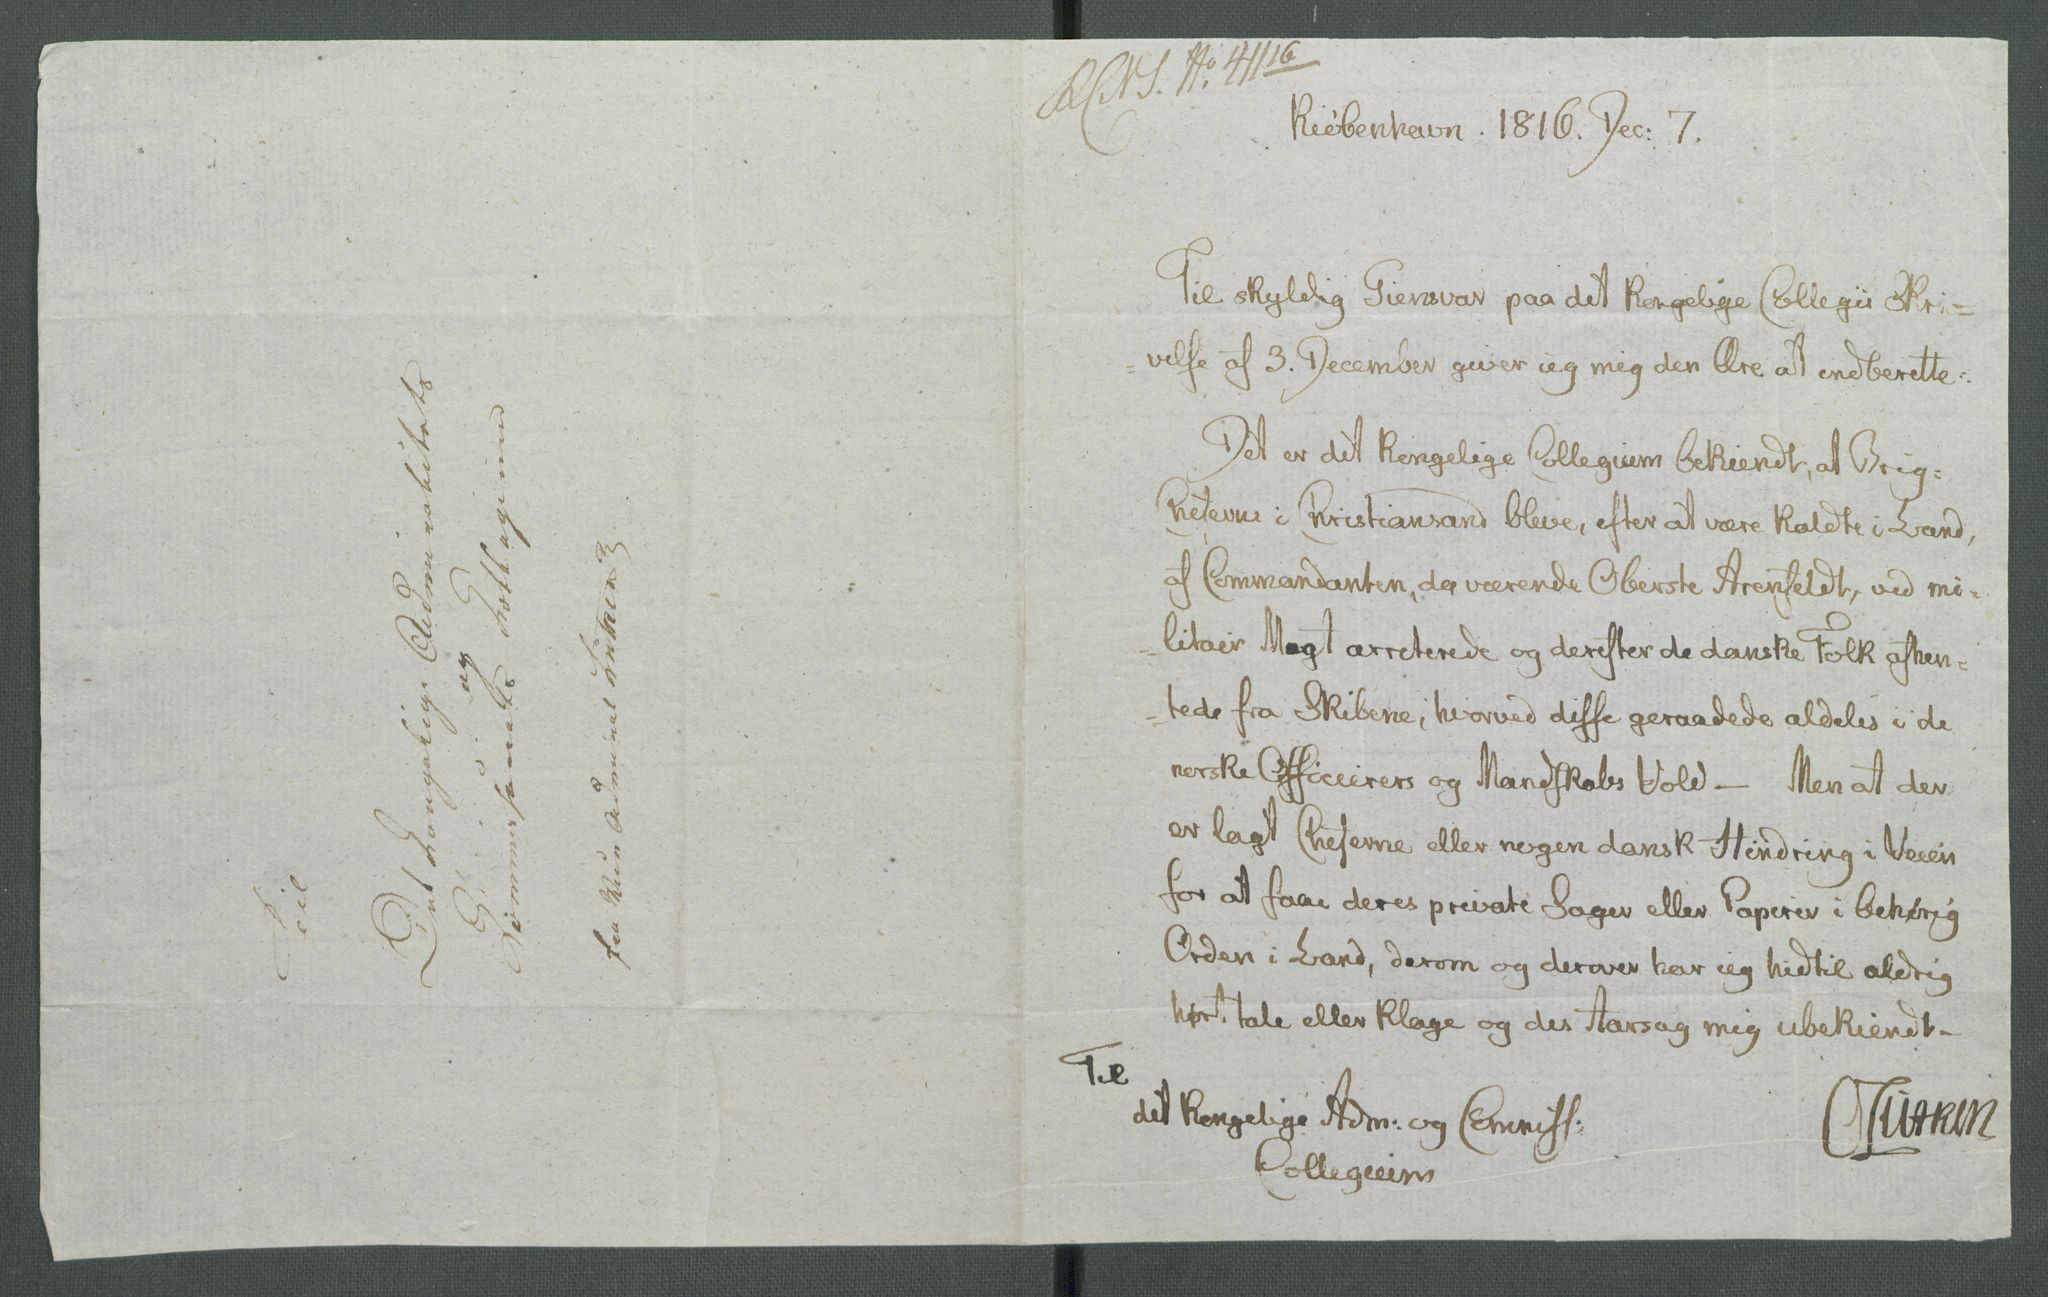 No. 4116
Kiøbenhavn. 1816. Dec: 7.
Til skyldig Giensvar paa det kongelige Collegii Skri=
=velse af 3. December giver ieg mig den Ære at indberette:
Det er det kongelige Collegium bekiendt, at Brig=
Cheferne i Christiansand bleve, efter at være kaldte i Land,
af Commandanten, da værende Oberste Arenfeldt, ved mi=
=litair Magt arreterede og derefter de danske Folk afhen=
=tede fra Skibene, hvorved disse geraadede aldeles i de
norske Officeirers og Mandskabs Vold — Men at der
er lagt Cheferne eller nogen dansk Hindring i Veien
for at faae deres private Sager eller Papirer i behørig
Orden i Land, derom og derover har ieg hidtil aldrig
hørt tale eller klage og des Aarsag mig ubekiendt —
Til
det kongelige Adm: og Commiss:
Collegium
OLütken
Til
Det Kongelige Admiralitets
og
Commissariats Collegium
fra Contre Admiral Lütken